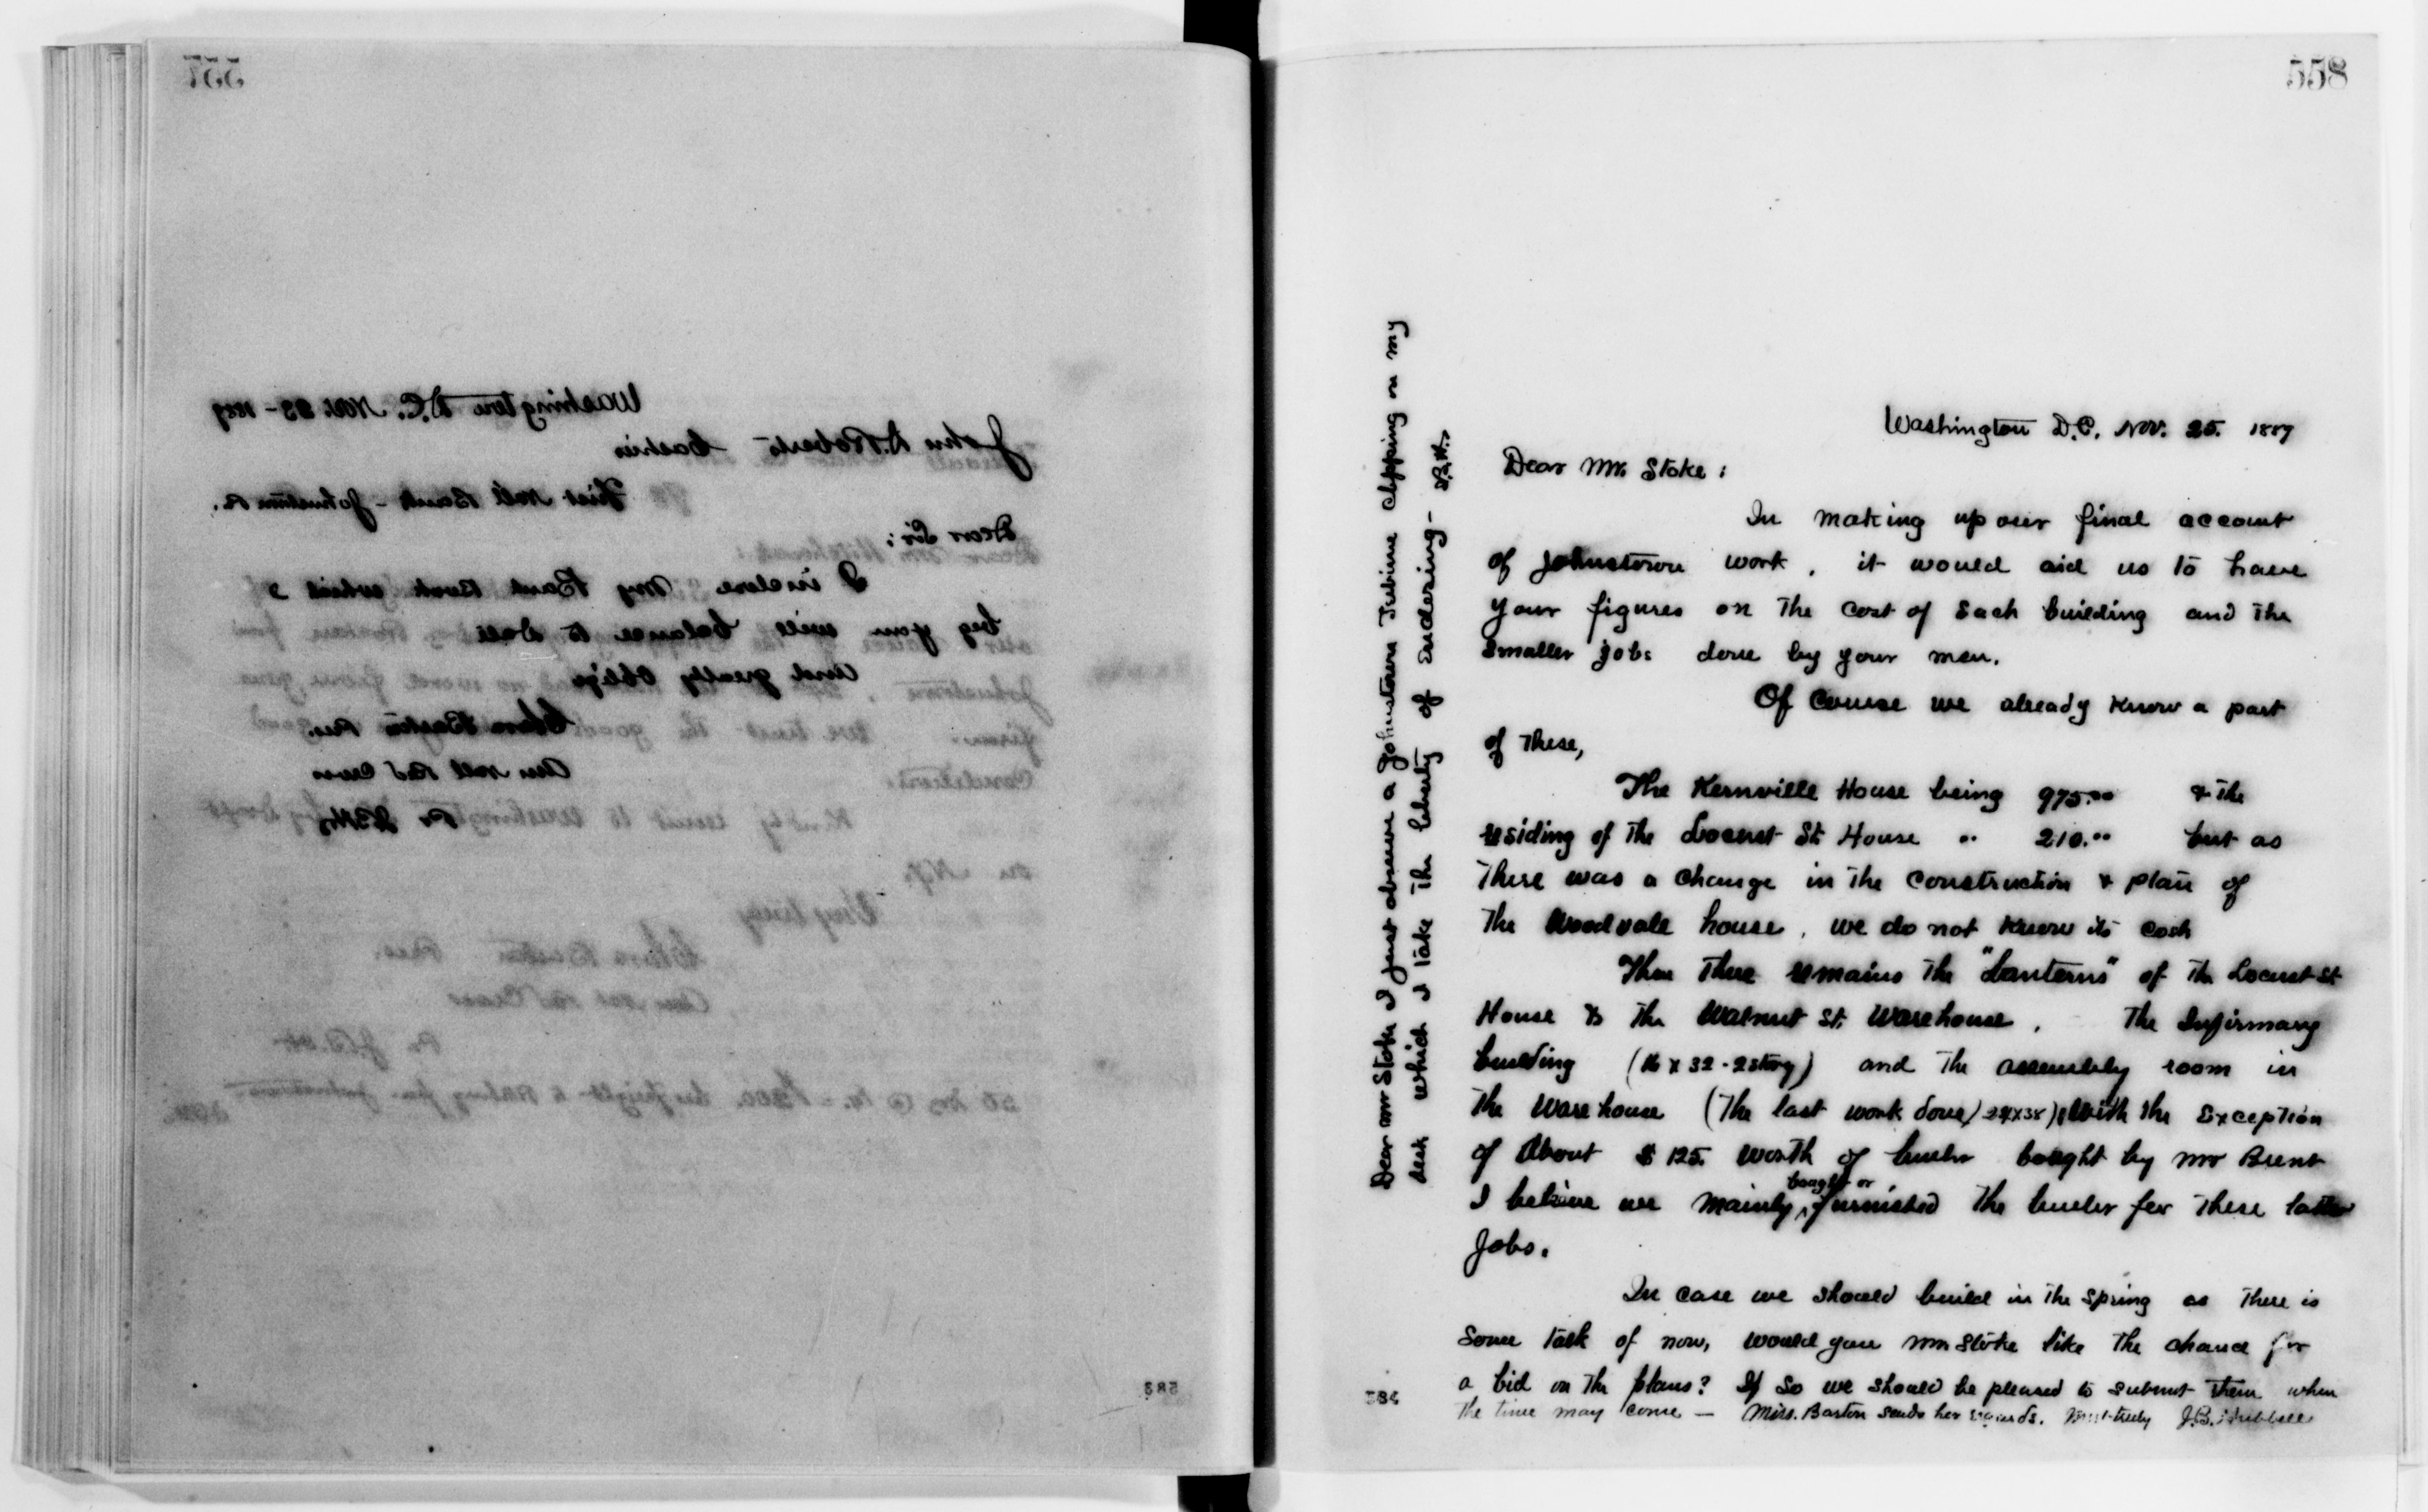 557
Washington D.C. Nov. 23 - 1889
John D. Roberts Cashier
First Natl Bank - Johnstown Pa.
Dear Sir:
I inclose my Bank Book which I
beg you will balance to date
and greatly oblige
Clara Barton Pres.
Am Natl Red Cross
Pr
583
558
Washington D.C. Nov. 25. 1889
Dear Mr. Stoke:
In making up our final account
of Johnstown work, it would aid us to have
your figures on the cost of each building and the
smaller jobs done by your men.
Of course we already know a part
of these,
The Kernville House being 975.00 & the
residing of the Locust St. House " 210.00 but as
there was a change in the construction & plan of
the Woodvale house, we do not know its cost
Then there remains the "Lanterns" of the Locust St
House & the Walnut St. Warehouse. The Infirmary
building (16 x 32 - 2 story) and the assembly room in
the Warehouse (the last work done) 24x38) with the exception
of about $125. worth of lumber bought by Mr Brent
I believe we mainly bought or furnished the lumber for these latter
jobs.
In case we should build in the spring as there is
some talk of now, would you Mr Stoke like the chance for
a bid on the plans? If so we should be pleased to submit them when
the time may come - Miss. Barton sends her regards. Most truly J.B. Hubbell
Dear Mr Stoke I just observe a Johnstown Tribune clipping on my
desk which I take the liberty of endorsing -
584